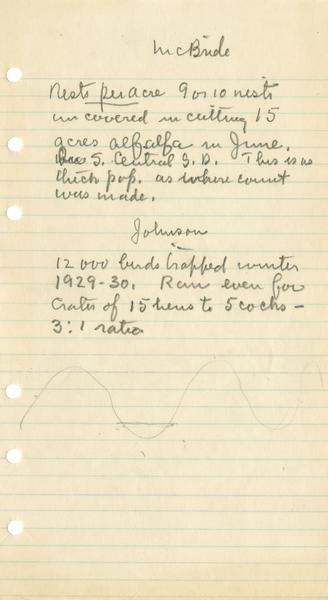 McBride
Nests per acre 9 or 10 nests
uncovered in cutting 15
acres alfalfa in June.
S. Central S.D. This is as
thick pop. as where count
was made.
Johnson
12000 birds trapped winter
1929-30. Ran even for
crates of 15 hens to 5 cocks -
3:1 ratio